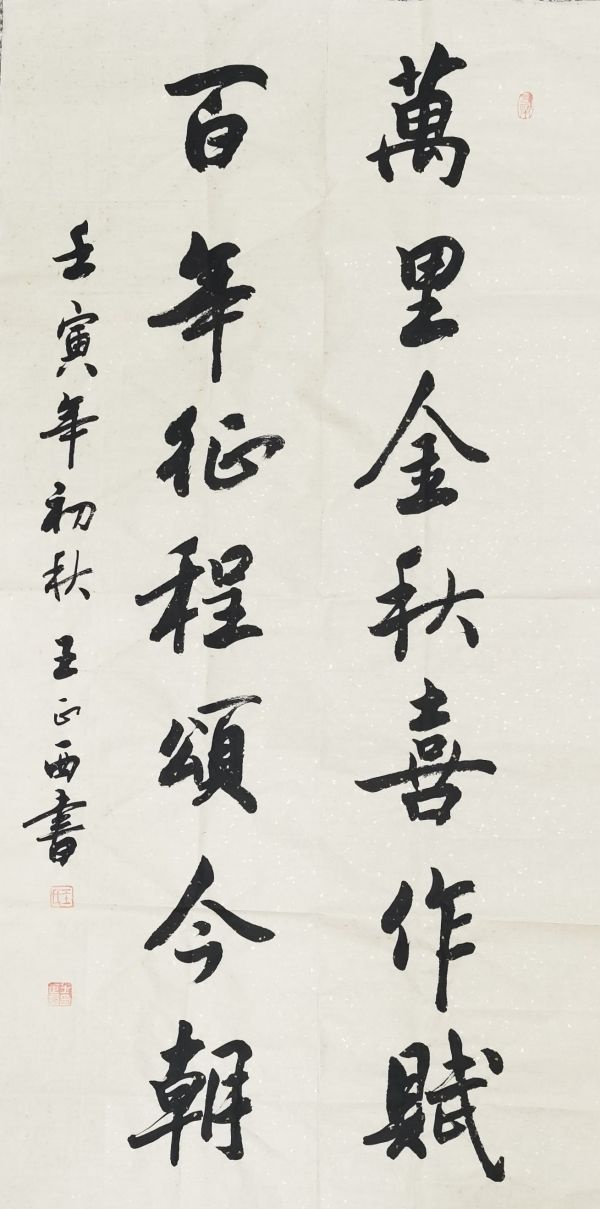 萬里金秋喜作賦
百年征程頌今朝
壬寅年初秋 王正西書